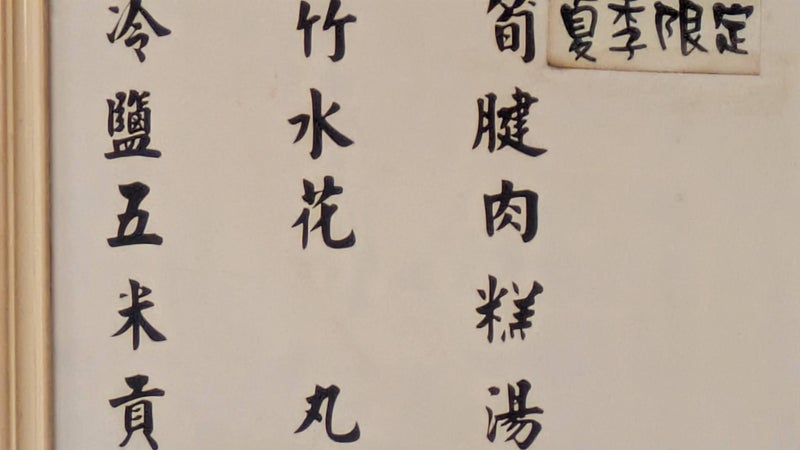 冷竹筍 夏季限定
鹽水腱
五花肉
米糕
貢丸湯